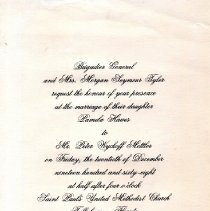 Brigadier General
and Mrs. Morgan Seymour Tyler
request the honour of your presence
at the marriage of their daughter
Pamela Hawes
to
Mr. Peter Wyckoff Mettler
on Friday, the twentieth of December
nineteen hundred and sixty-eight
at half after four o'clock
Saint Paul's United Methodist Church
Tallahassee, Florida